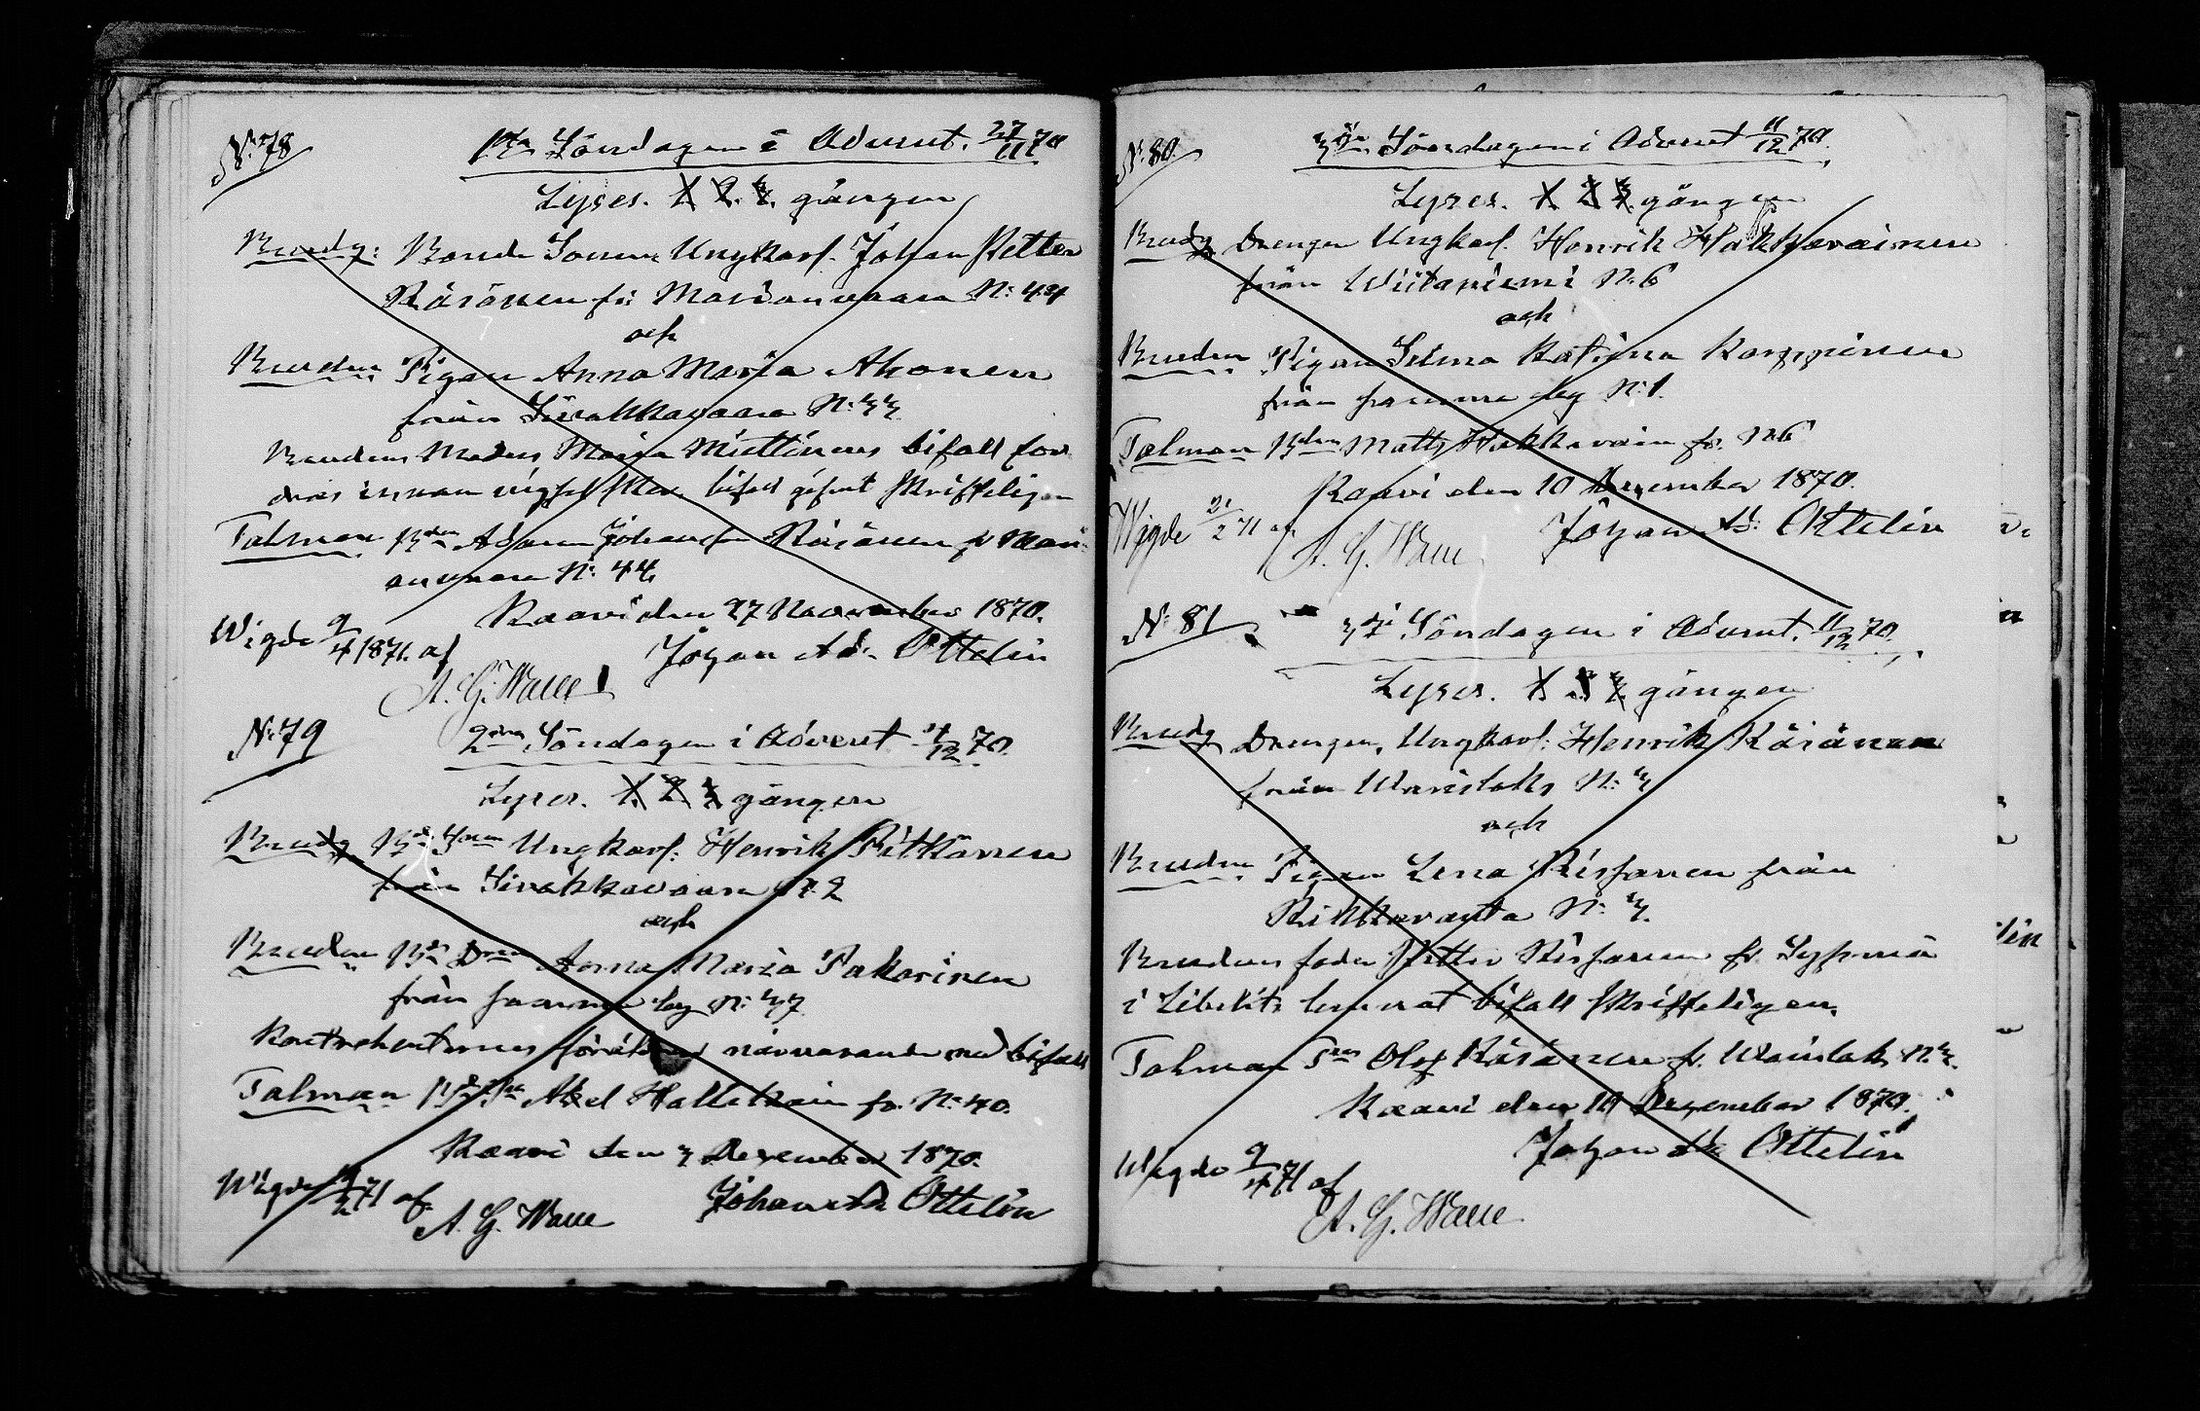 N: 78
1sta Söndagen i Advent. 27/11 70
Lyses. 1. 2. 3. gången
Brudg: Bonde Sonen Ungkarl. Johan Petter
Räsänen fr: Marianvaara N: 44
och
Bruden Pigan Anna Maria Ahonen
från Sivakkavaara N: 33
Brudens Moders Maria Miettinens bifall for
dras innan vigsel sker bifall gifvet skriftligen
Talman Bden Adam Johan Räsänen fr Mari-
anvaara N: 44
Kaavi den 27 November 1870.
Wigde 9/4 1871. af
Johan Ad. Ottelin
A. G. Walle
N: 79
2dra Söndagen i Advent 4/12 70.
Lyses. 1. 2. 3. gången
Brudg Bde Sonen Ungkarl: Henrik Pitkänen
från Sivakkavaara N: 2
och
Bruden Bde Dren Anna Maria Pakarinen
från samma by N: 37
Kontrahenternes föräldrar närvarande med bifall
Talman Axel Halleikain fr. N: 40.
Kaavi den 3 December 1870.
Wigde 71 af.
Johan Ad Ottelin
A. G. Walle
N: 80.
3dje Söndagen i Advent 11/12 70.
Lyses. 1. 2. 3. gången
Brudg Drengen Ungkarl. Henrik Hakkarainen
från Wiitaniemi N: 6
och
Bruden Pigan Selma Katrina Karppinen
från samma by N: 1.
Talman Bden Matts Hakkarain fr. N: 6
Kaavi den 10 December 1870.
Wigde 21/2 71 af
Johan Ad: Ottelin
A. G. Walle
N: 81
3dje Söndagen i Advent. 11/12 70.
Lyses. 1. 2. 3. gången
Brudg Drengen, Ungkarl: Henrik Räsänen
från Waristaks N: 3
och
Bruden Pigan Lena Riskanen från
Rikkaranta N: 3.
Brudens fader Petter Riskanen fr. Sysmä
i Libelits lemnat bifall skriftligen.
Talman Olof Räsänen fr. N: 3.
Kaavi den 10 December 1870.
Johan Ad: Ottelin
Wigde 9/4 71 af
A. G. Walle